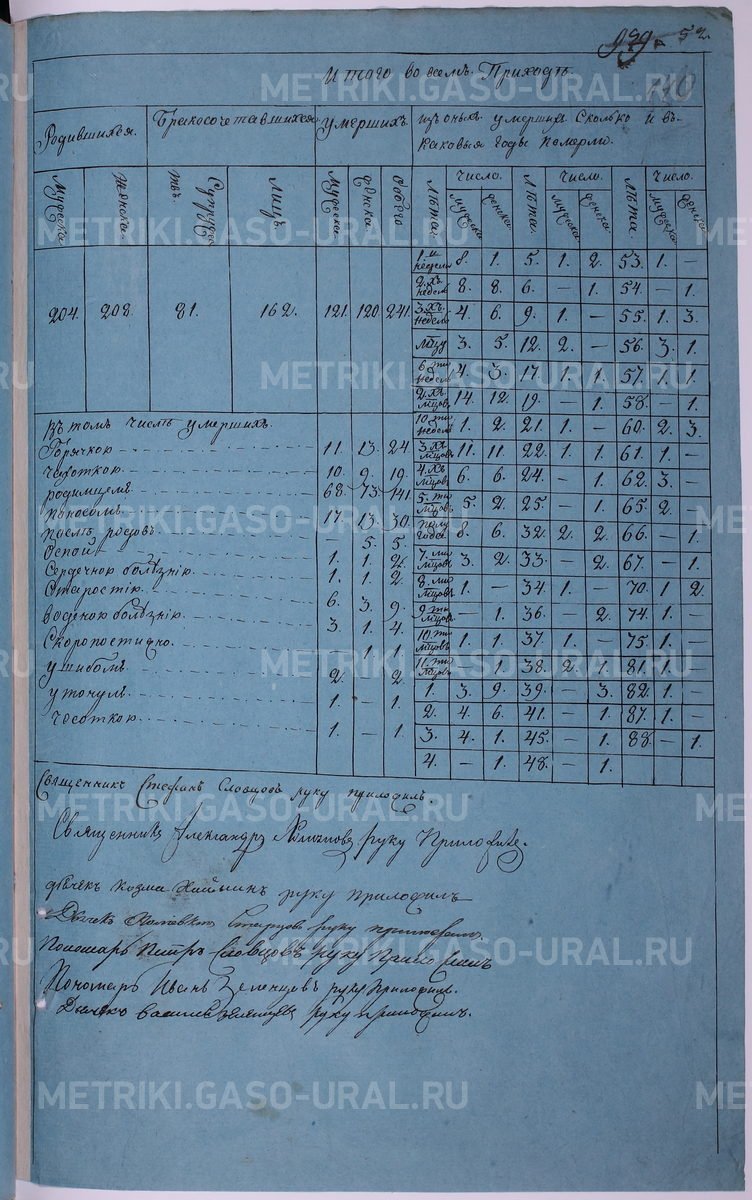 52.
110
Итого во всемъ Приходѣ.
Родившихся. Бракосочетавшихся умершихъ. изъ оныхъ умершихъ Сколько и въ
каковыя годы померли.
Мужеска. Женска. Супружествъ Лицъ Мужеска. женска. Обоего Лѣта. Число. мужеска женска. Лѣта. Число. мужеска женска. Лѣта. Число. мужеска женска.
1й недели 8. 1. 5. 1. 2. 53. 1. —
2хъ недель 8. 8. 6. — 1. 54. — 1.
204. 208. 81. 162. 121. 120. 241. 3хъ недель 4. 6. 9. 1. — 55. 1. 3.
мѣцу 3. 5. 12. 2. — 56. 3. 1.
6ти недель 4. 3. 17. 1. 1. 57. 1. 1.
2хъ мѣцовъ 14. 12. 19. — 1. 58. — 1.
10ти недель 1. 2. 21. 1. — 60. 2. 3.
3хъ мѣцовъ 11. 11. 22. 1. 1. 61. 1. —
4хъ мѣцовъ 6. 6. 24. — 1. 62. 3. —
5ти мѣцовъ 5. 2. 25. — 1. 65. 2.
полугода 8. 6. 32. 2. 2. 66. — 1.
7ми мѣцовъ 3. 2. 33. — 2. 67. — 1.
8ми мѣцовъ 1. — 34. 1. — 70. 1 2.
9ти мѣцовъ — 1. 36. — 2. 74. 1.
10ти мѣцовъ 1. 1. 37. 1. — 75. 1. —
11ти мѣцовъ — 1. 38. 2. 1. 81. 1. —
1. 3. 9. 39. — 3. 82. 1. —
2. 4. 6. 41. — 1. 87. 1. —
3. 4. 1. 45. — 1. 88. — 1.
4. — 1. 48. — 1.
Въ томъ числѣ умершихъ.
Горячкою 11. 13. 24.
чахоткою 10. 9. 19.
родимцемъ 68. 73. 141.
поносомъ 17. 13. 30.
послѣ родовъ — 5. 5.
Оспой 1. 1. 2.
Сердечною болѣзнію. 1. 1. 2.
Старостію 6. 3. 9.
водяною болѣзнію. 3. 1. 4.
Скоропостижно. — 1. 1.
ушибомъ 2. — 2.
утонулъ 1. — 1.
чесоткою 1. — 1.
Священникъ Стефанъ Словцовъ руку приложилъ.
Священникъ Александръ руку Приложилъ.
дьячекъ Козма руку приложилъ
Дьячекъ Старцовъ руку приложилъ
Пономарь Петръ Словцовъ руку приложилъ
Пономарь Иванъ Зеленцовъ руку приложилъ.
Дьячекъ Василий Зеленцовъ руку приложилъ.
METRIKI.GASO-URAL.RU